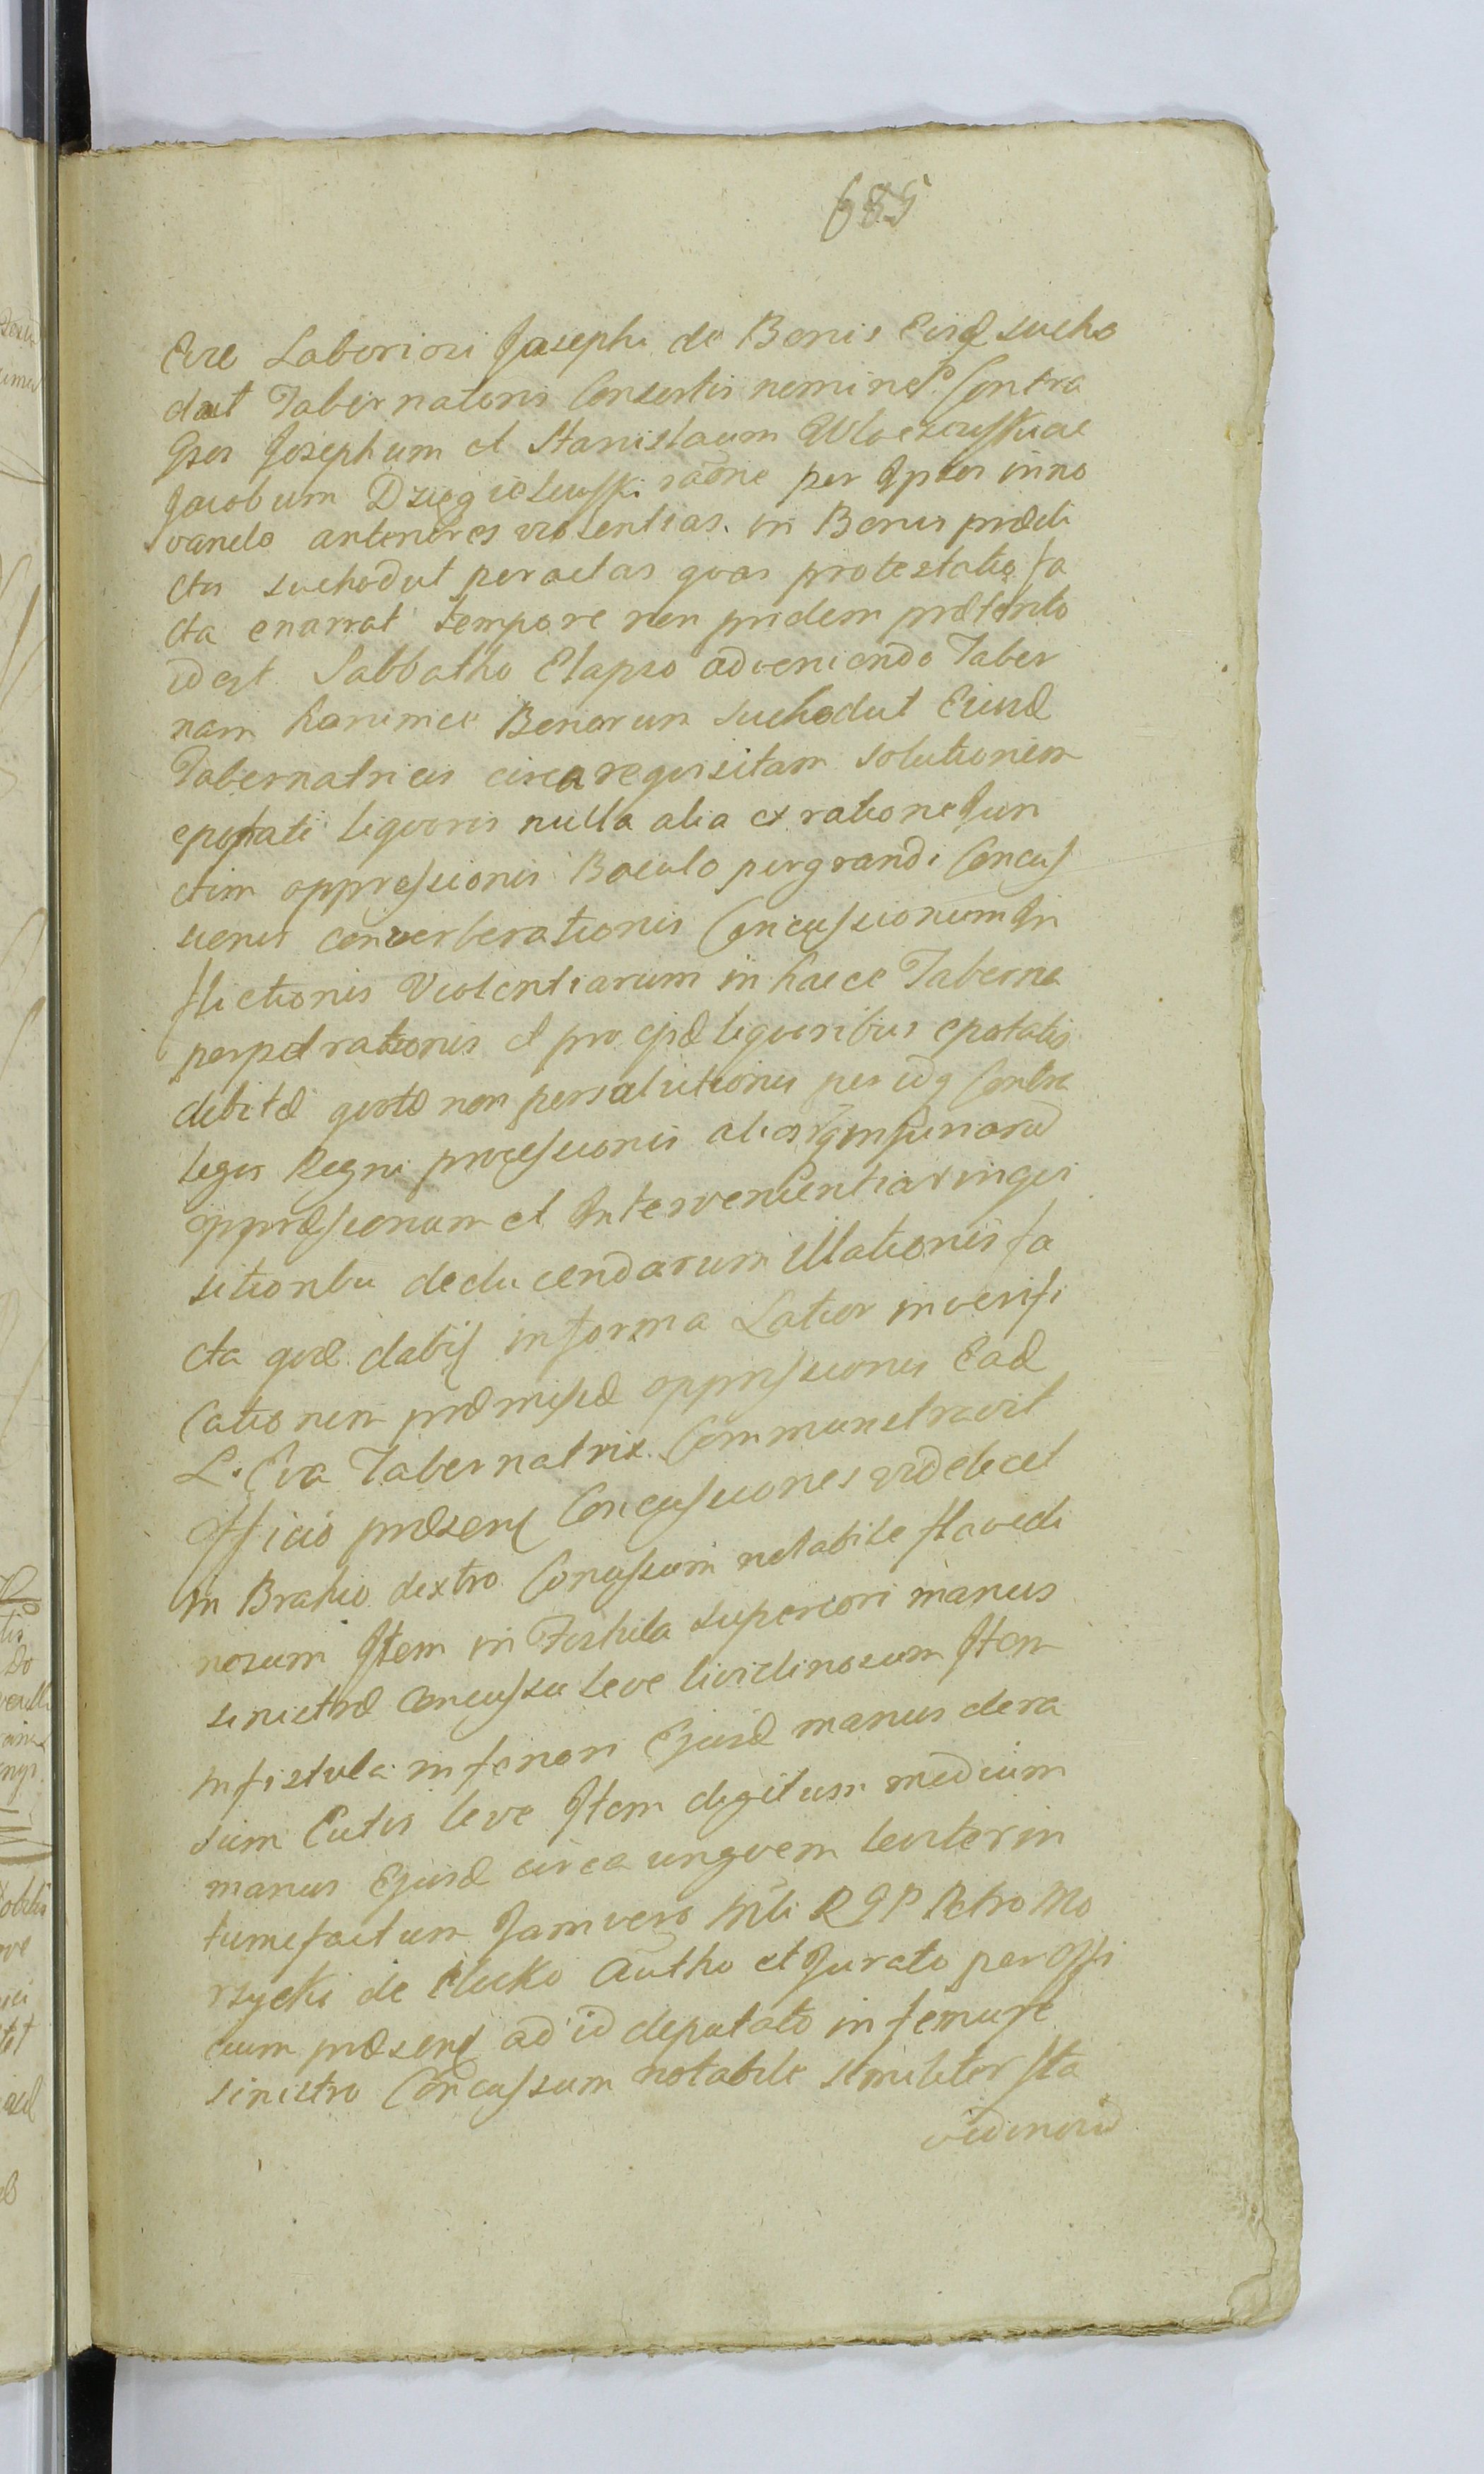 685
Evæ Laboriosi Josephi de Bonis Eisd sucho
dat Tabernatoris Consortis nomine Contra
Gsos Josephum et Stanislaum Wloczewskie ac
Jacobum Dzięgielewski raõne per Ipsos inno
vando anteriores violentias in Bonis prædi
ctis suchodut peractas quas protestatio fa
cta enarrat tempore non pridem præterito
idest Sabbatho Elapso adveniendo Taber
nam hanimce Bonorum Suchodut Eiusd
Tabernatricis circa requisitam Solutionem
epotati liquoris nulla alia ex ratione Jun
ctim oppressionis Baculo pergrandi Concus
sionis converberationis Concussionum In
flictionis Violentiarum in hacce Taberna
perpetrationis et pro ejsd liquoribus epotatis
debitæ quotæ non persolutionis per idq Contra
leges Regni processionis aliarq injuriarũ
oppressionum et Intervenientiar inqui
sitionibu deducendarum illationis fa
cta quæ dabit in forma Latior in verifi
cationem præmissæ oppressionis Ead
L. Eva Tabernatrix Commonstravit
Officio præsenti Concussiones videlicet
in Brahio dextro Concussum notabile flavedi
nosum Item in Fistula superiori manus
sinistræ Concussu leve lividinosum Item
in fistula inferiori Ejusd manus dera
sum Cutis leve Item digitum medium
manus Ejusd circa unguem leviter in
tumefactum Jam vero Mli R G P Petro Mo
rzycki de Autho et Jurato per Offi
cium præsens ad id deputato in femure
sinistro Concussum notabile similiter fla
vidinosũ